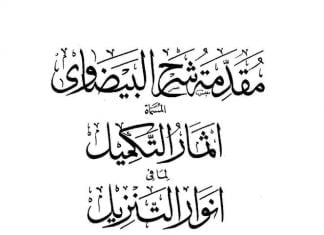 مُقَدِّمَة شَرْحُ الْبَيْضَاوِي
المُسَمَّاة
اثْمَارُ التَّكْمِيل
لِمَا فِي
اَنْوَارُ التَّنْزِيل